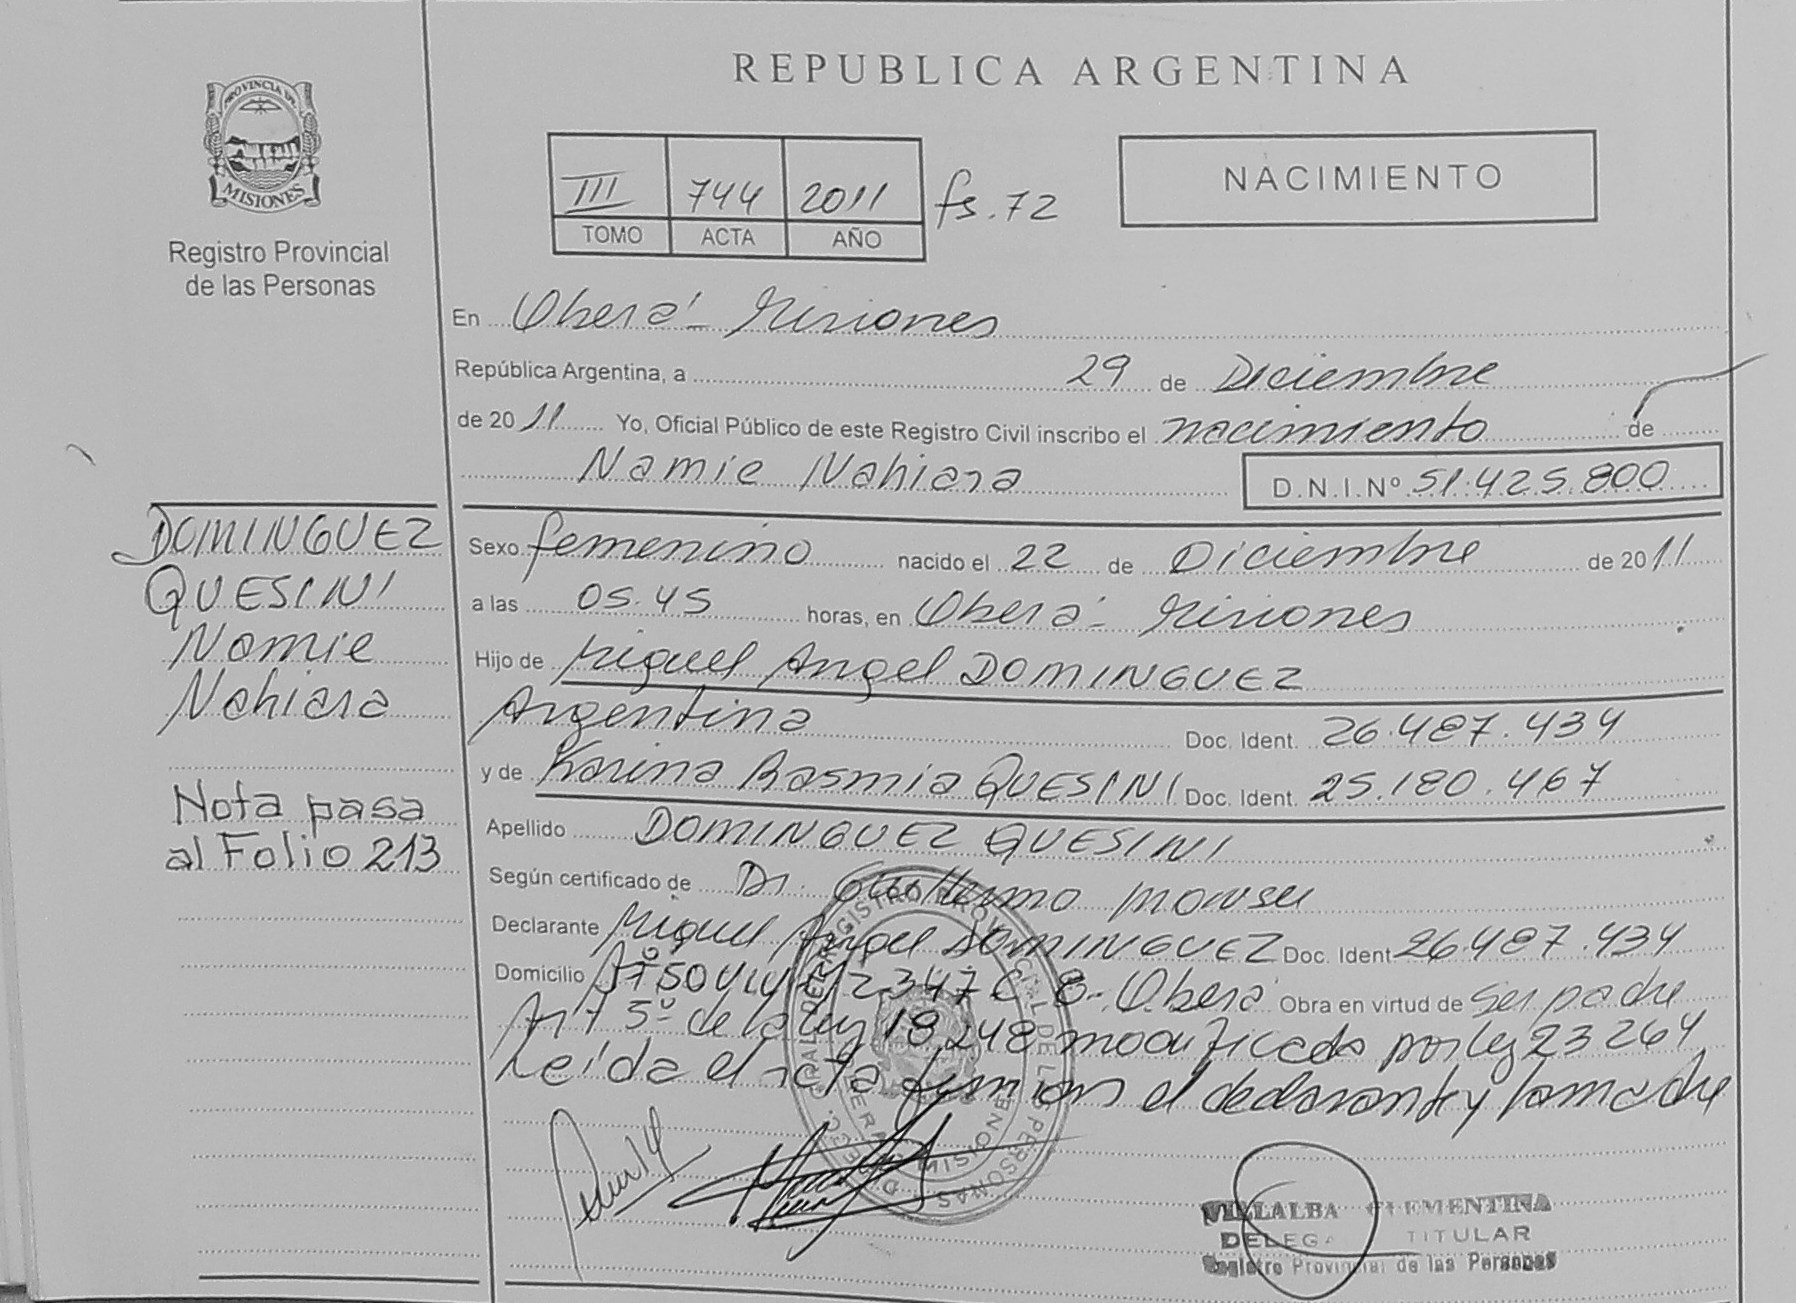 REPUBLICA ARGENTINA
PROVINCIA DE
MISIONES
Registro Provincial
de las Personas
III 744 2011 fs. 72
TOMO ACTA AÑO
NACIMIENTO
En Oberá - Misiones
República Argentina, a 29 de Diciembre
de 2011 Yo, Oficial Público de este Registro Civil inscribo el nacimiento de
Namie Nahiara D.N.I.Nº 51.425.800
DOMINGUEZ
QUESINI
Namie
Nahiara
Nota pasa
al Folio 213
Sexo femenino nacido el 22 de Diciembre de 2011
a las 05.45 horas, en Oberá - Misiones
Hijo de Miguel Angel DOMINGUEZ
Argentina Doc. Ident. 26.487.434
y de Karina Rasmia QUESINI Doc. Ident. 25.180.467
Apellido DOMINGUEZ QUESINI
Según certificado de Dr. Guillermo
Declarante Miguel Angel DOMINGUEZ Doc. Ident 26.487.434
Domicilio 2347 C 8 - Oberá Obra en virtud de ser padre
Art 5º de la ley 18.248 modificada por ley 23264
Leída el acta firman el declarante y la madre
REGISTRO PROVINCIAL DE LAS PERSONAS
MISIONES
VILLALBA CLEMENTINA
DELEGA TITULAR
Registro Provincial de las Personas